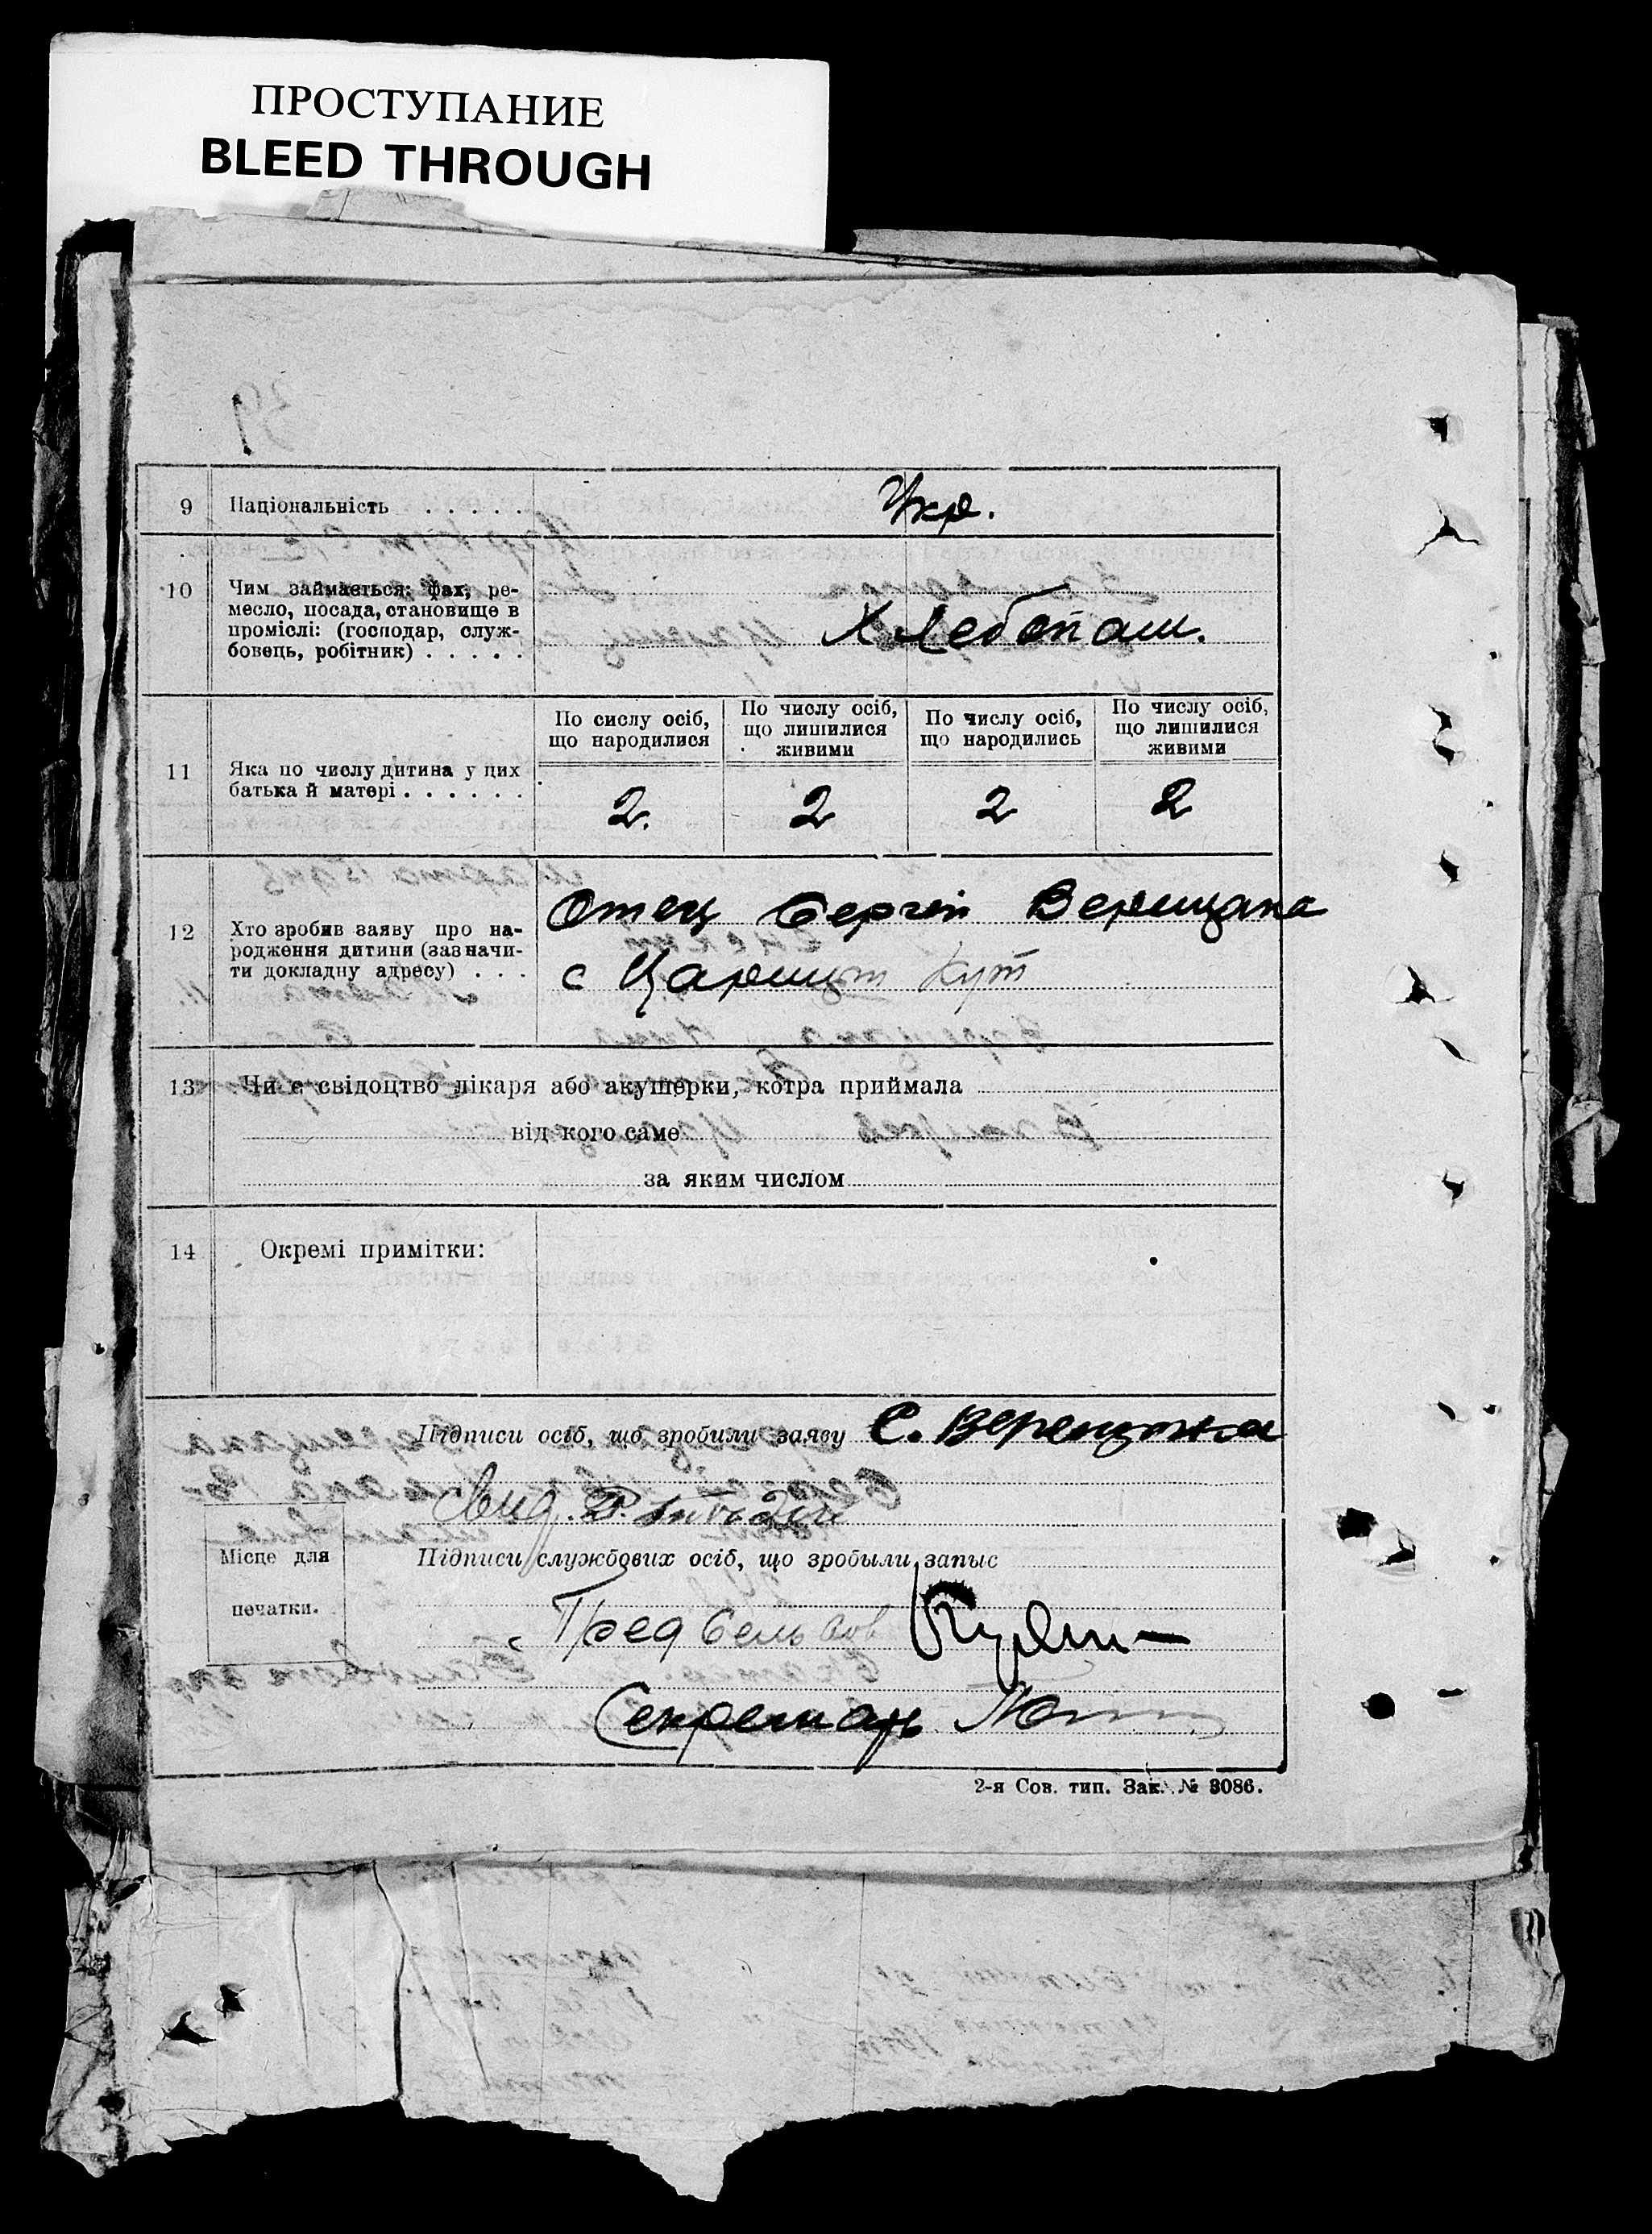 ПРОСТУПАНИЕ
BLEED THROUGH
39
9 Національність . . . . . Укр.
10 Чим займається: фах, ре-
месло, посада, становище в
проміслі: (господар, служ-
бовець, робітник) . . . . .
Хлебопаш.
По сислу осіб,
що народилися
По числу осіб,
що лишилися
живими
По числу осіб,
що народились
По числу осіб,
що лишилися
живими
11 Яка по числу дитина у цих
батька й матері . . . . . .
2. 2 2 2
12 Хто зробив заяву про на-
родження дитини (зазначи-
ти докладну адресу) . . .
Отец Сергей Верещака
с Царицин Кут
13 Чи є свідоцтво лікаря або акушерки, котра приймала
від кого саме
за яким числом
14 Окремі примітки:
Підписи осіб, що зробили заяву С. Верещака
Підписи службових осіб, що зробыли запыс
Місце для
печатки.
Пред сельсов
Секретарь
2-я Сов. тип. Зак. № 3086.